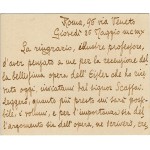 Roma, 98 via Veneto
Giovedì 15 Maggio
La ringrazio, illustre professore,
d'aver pensato a me per la recensione del-
la bellissima opera dell' che ho rice-
vuto oggi, inviatami dal signor
Leggerò, quanto più presto mi sarà possi-
bile, i volumi, e per l'importanza sia del-
l'argomento sia dell'opera, ne scriverò,